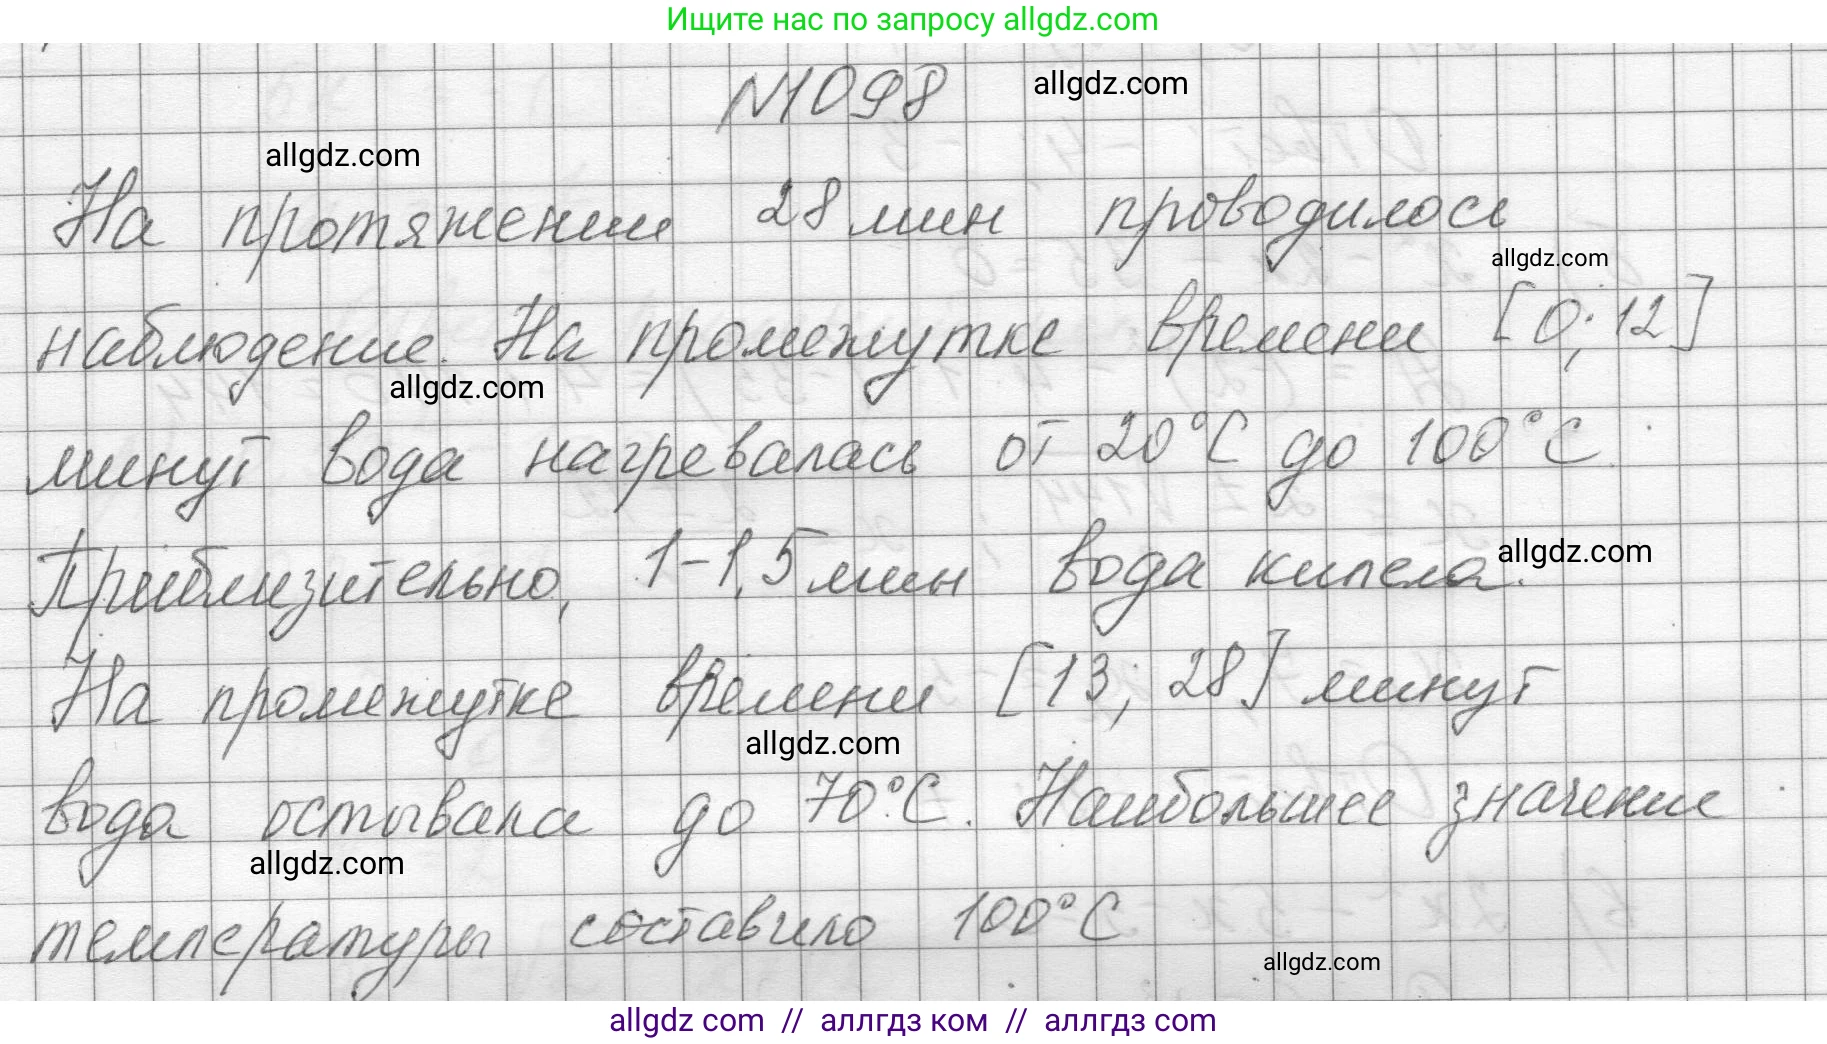 Ищите нас по запросу allgdz.com
N1098
allgdz.com
allgdz.com
На протяжении 28 мин проводилось
allgdz.com
наблюдение. На промежутке времени [0; 12]
allgdz.com
минут вода нагревалась от 20°C до 100°C.
Приблизительно, 1-1,5 мин вода кипела.
allgdz.com
На промежутке времени [13; 28] минут
allgdz.com
вода остывала до 70°C. Наибольшее значение
allgdz.com
температуры составило 100°C
allgdz.com
allgdz com // аллгдз ком // аллгдз com